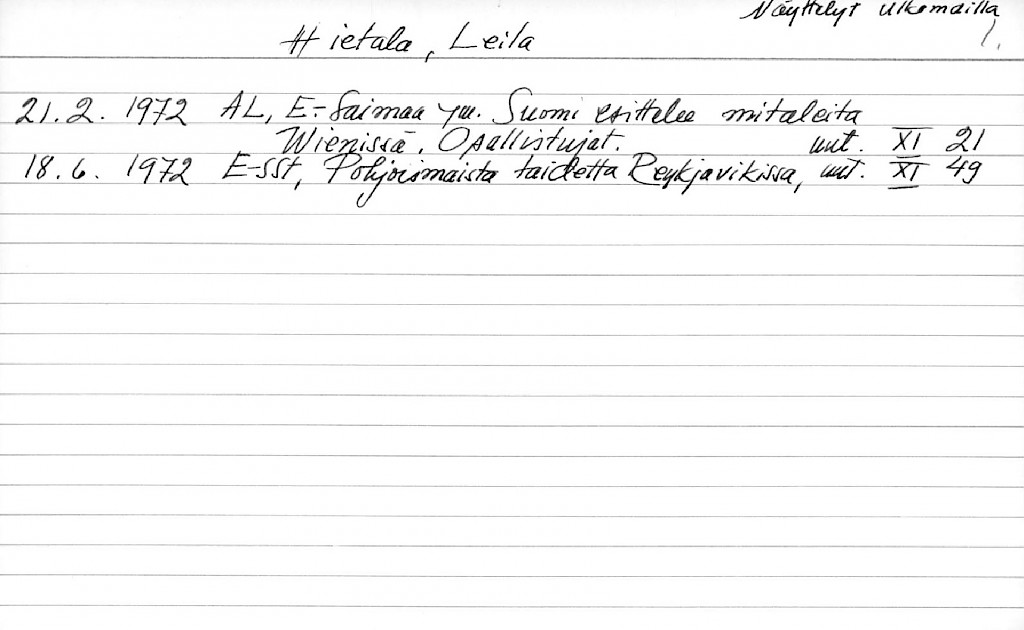 Näyttelyt ulkomailla
1.
Hietala, Leila
21.2. 1972 AL, E-Saimaa ym. Suomi esittelee mitaleita
Wienissä. Osallistujat. uut. XI 21
18.6. 1972 E-SSt, Pohjoismaista taidetta Reykjavikissa, uut. XI 49